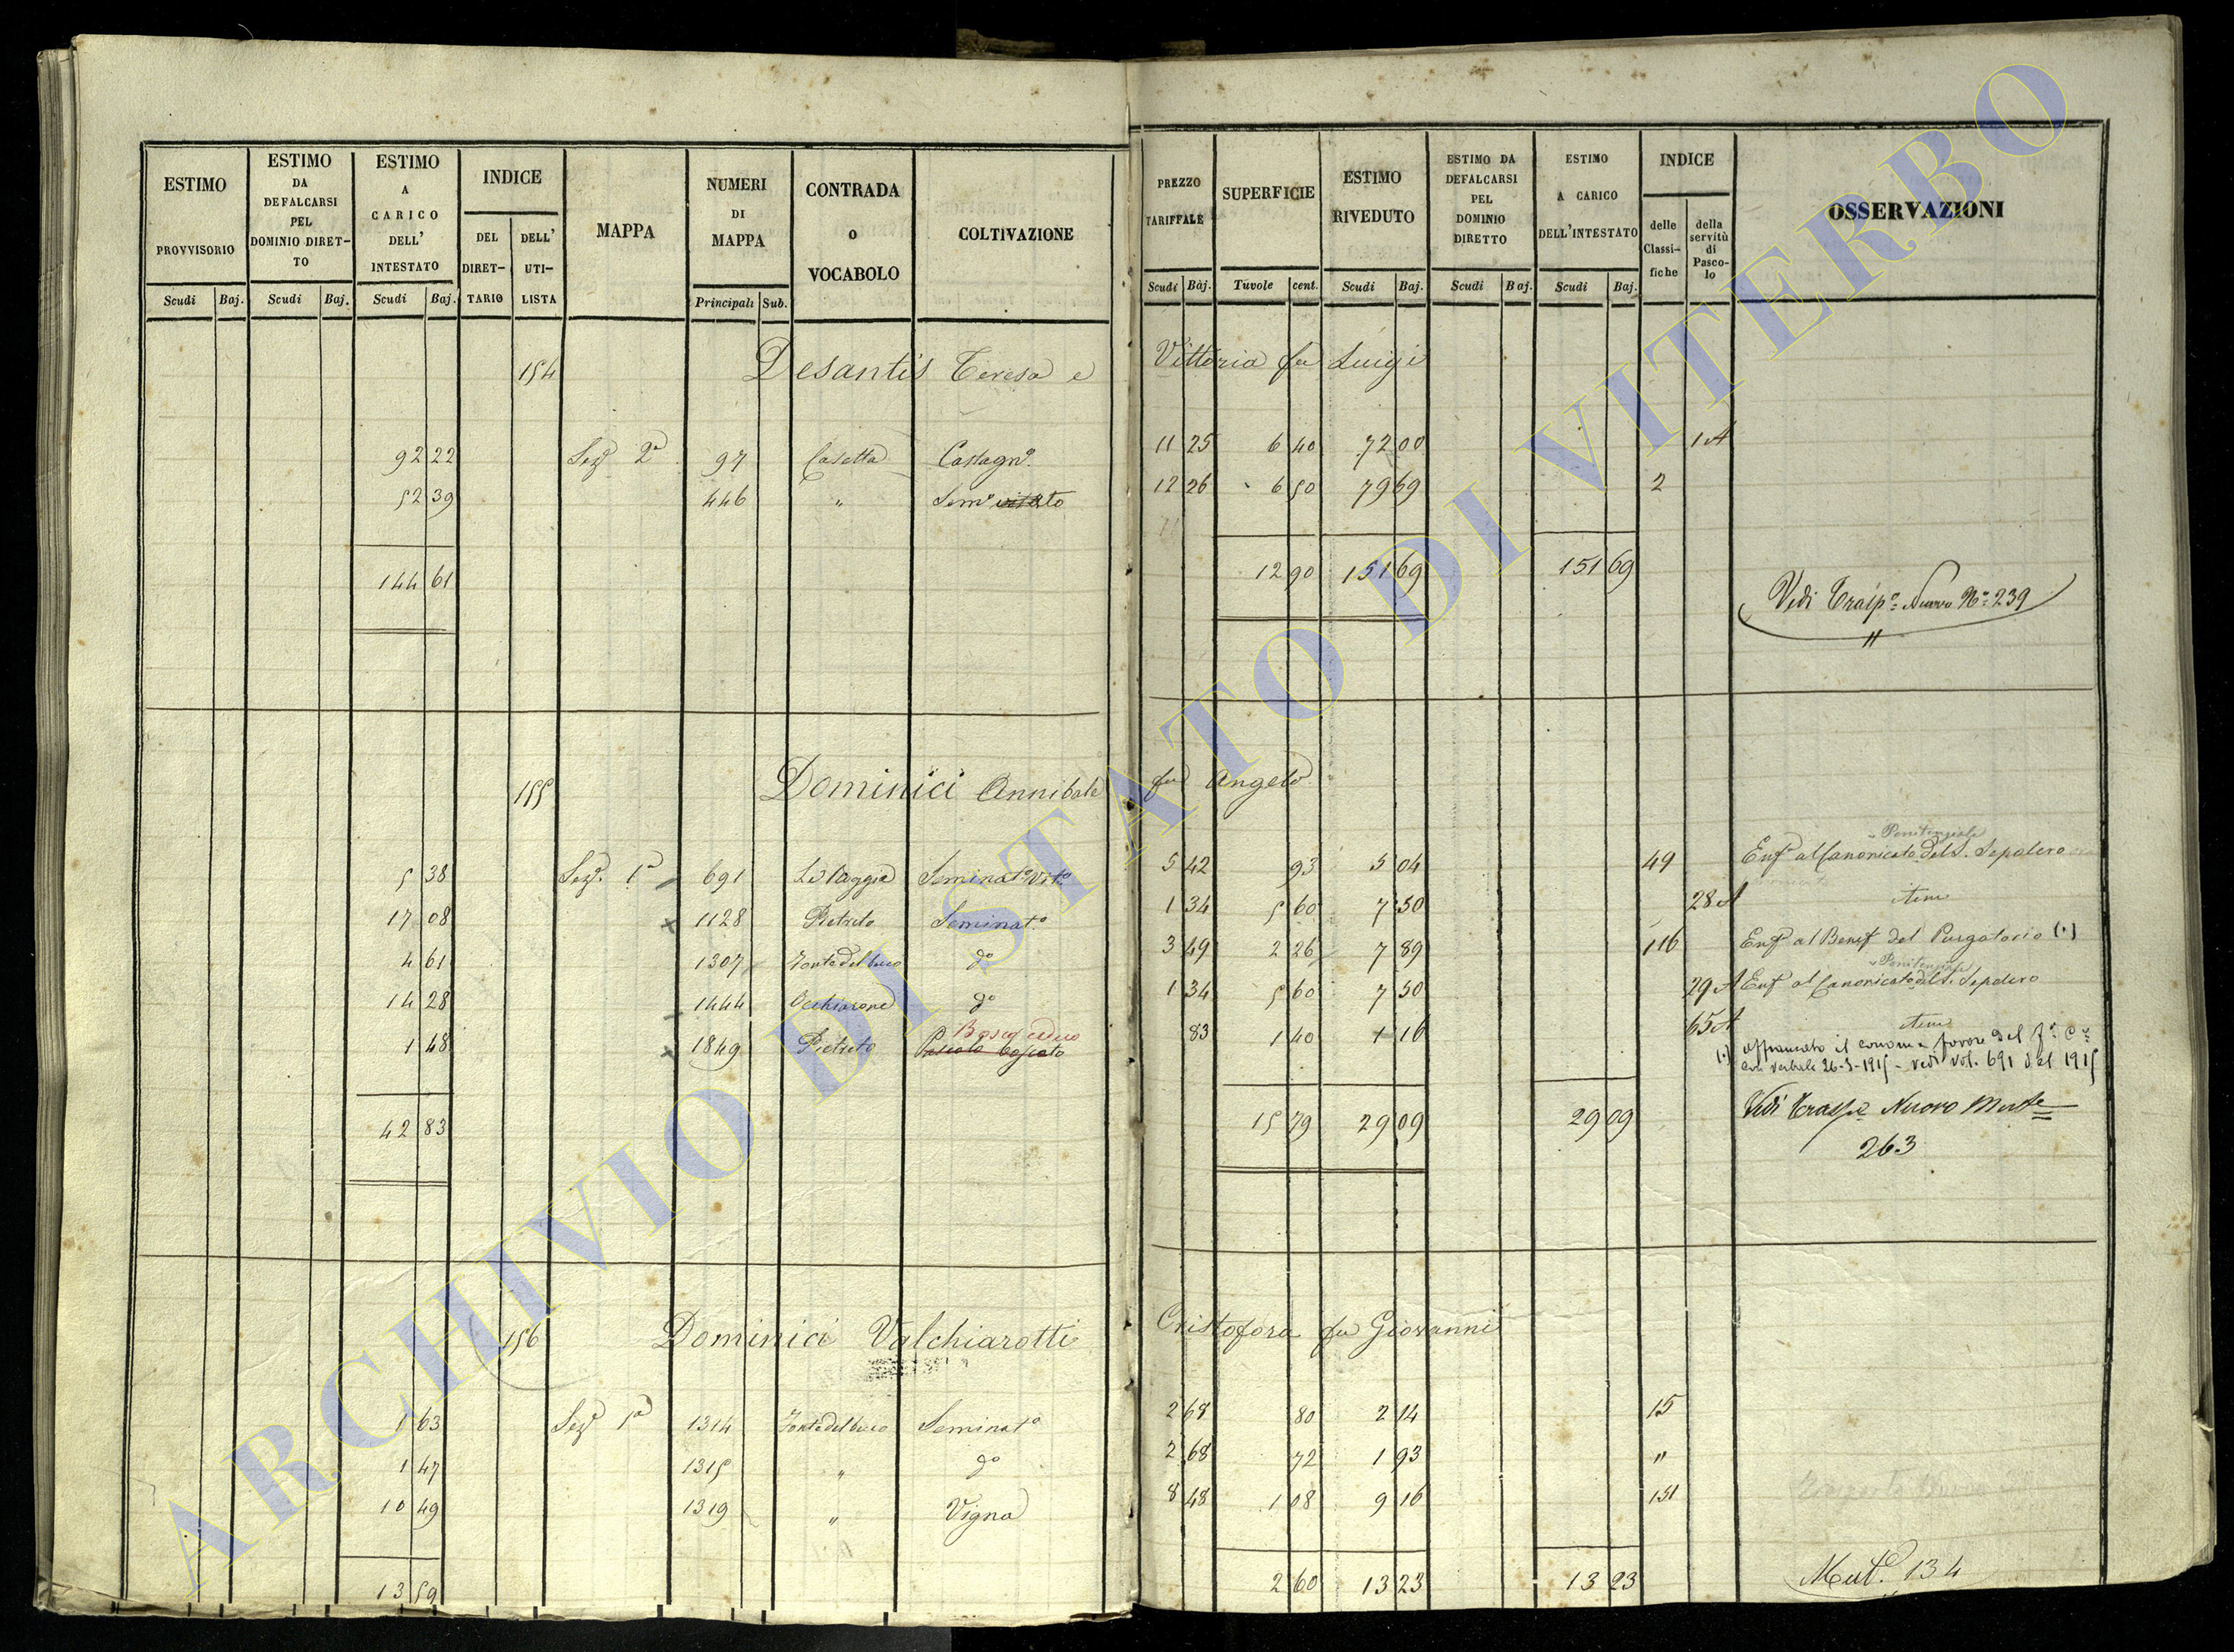 ESTIMO PROVVISORIO
Scudi Baj.
ESTIMO DA DEFALCARSI PEL DOMINIO DIRET-TO
Scudi Baj.
ESTIMO A CARICO DELL' INTESTATO
Scudi Baj.
INDICE
DEL DIRET-TARIO
DELL' UTI-LISTA
MAPPA
NUMERI DI MAPPA
Principali Sub.
CONTRADA O VOCABOLO
COLTIVAZIONE
PREZZO TARIFFALE
Scudi Bàj.
SUPERFICIE
Tavole cent.
ESTIMO RIVEDUTO
Scudi Baj.
ESTIMO DA DEFALCARSI PEL DOMINIO DIRETTO
Scudi Baj.
ESTIMO A CARICO DELL'INTESTATO
Scudi Baj.
INDICE
delle Classi-fiche
della servitù di Pasco-lo
OSSERVAZIONI
154 Desantis Teresa e Vittoria fu Luigi
92 22 Sezᵉ 2ᵃ 97 Casetta Castagnᵒ. 11 25 6 40 72 00 1 A
52 39 446 " Semᵒ vitato 12 26 6 50 79 69 2
144 61 12 90 151 69 151 69
Vedi Traspᵒ Nuovo Nᵒ 239
155 Dominici Annibale fu Angelo
Penitenziale
5 38 Sezᵉ. 1ᵃ 691 Seminatᵒ Vitᵒ 5 42 93 5 04 49 Enfᵃ al Canonicato del S. Sepolcro
17 08 x 1128 Pietreto Seminatᵒ 1 34 5 60 7 50 28 A
4 61 1307 Fonte del buco dᵒ 3 49 2 26 7 89 116 Enfᵃ al Benefᵒ del Purgatorio (·)
Penitenziale
14 28 1444 Occhiarone dᵒ 1 34 5 60 7 50 29 A Enfᵃ al Canonicato del S. Sepolcro
Bosco ceduo
1 48 x 1849 Pietreto Pascolo boscato 83 1 40 1 16 65 A
(·) Affrancato il canone a favore del
con verbale 26-3-1915 - vedi vol. 691 del 1915
42 83 15 79 29 09 29 09 Vedi Traspᵒ Nuovo
263
156 Dominici Valchiarotti Cristofora fu Giovanni
1 63 Sezᵉ 1ᵃ 1314 Fonte del buco Seminatᵒ 2 68 80 2 14 15
1 47 1315 " dᵒ 2 68 72 1 93 "
10 49 1319 " Vigna 8 48 1 08 9 16 151
13 59 2 60 13 23 13 23 Mutᵉ. 134
ARCHIVIO DI STATO DI VITERBO